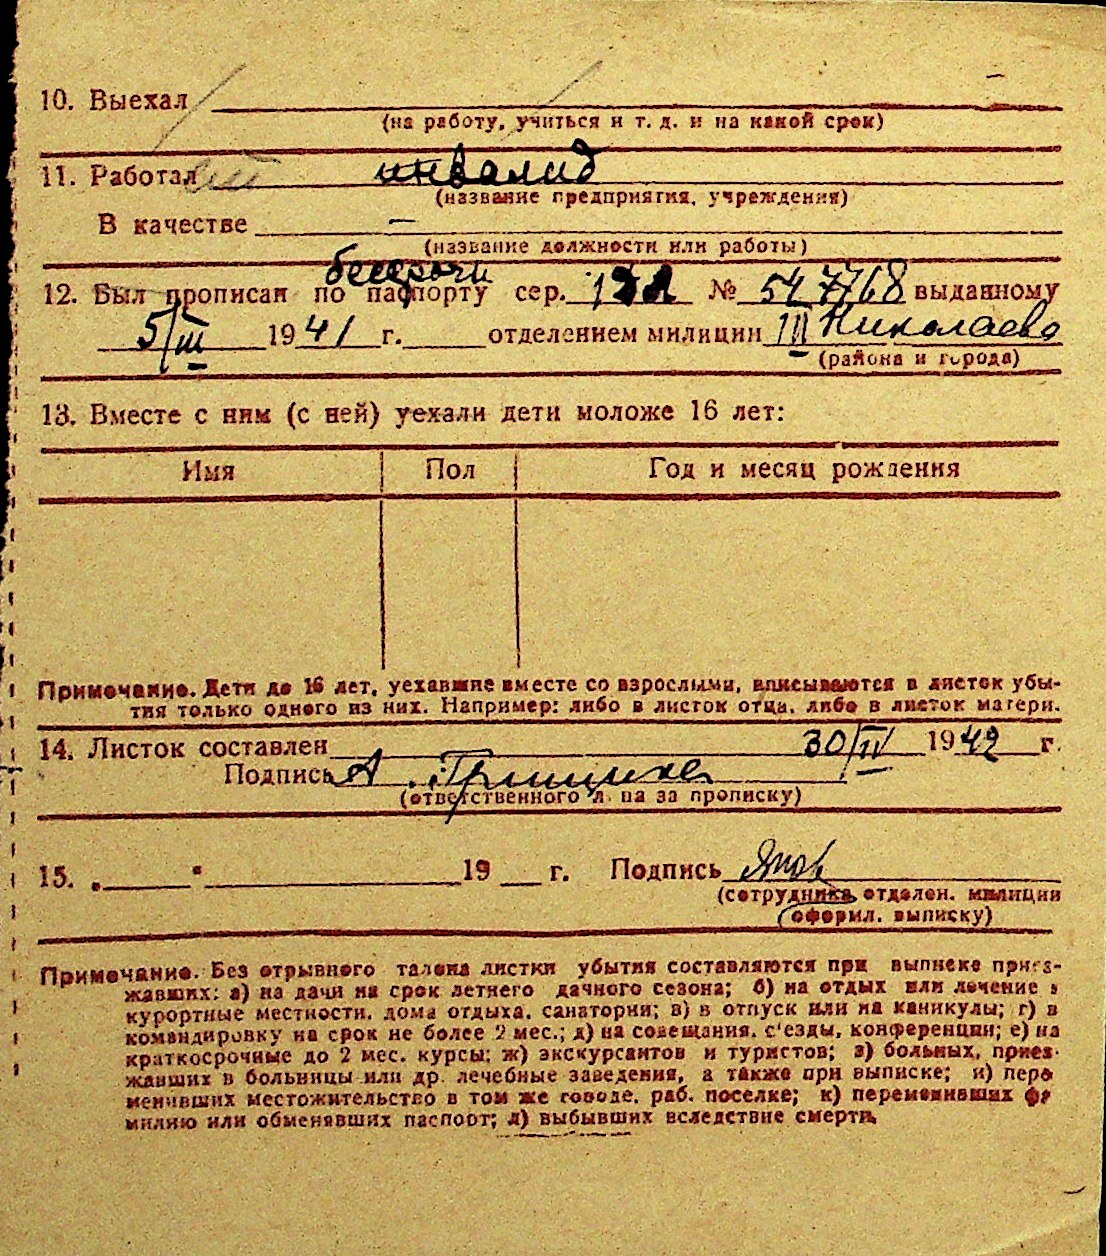 10. Выехал
(на работу, учиться и т. д. и на какой срок)
11. Работал инвалид
(название предприятия, учреждения)
В качестве —
(название должности или работы)
бессрочн
12. Был прописан по паспорту сер. № 547768 выданному
5/III 1941 г. отделением милиции III Николаево
(района и города)
13. Вместе с ним (с ней) уехали дети моложе 16 лет:
Имя Пол Год и месяц рождения
Примечание. Дети до 16 лет, уехавшие вместе со взрослыми, вписываются в листок убы-
тия только одного из них. Например: либо в листок отца, либо в листок матери.
14. Листок составлен 30/IV 1942 г.
Подпись А.
(ответственного л. па за прописку)
15. „ " 19 г. Подпись
(сотрудника отделен. милиции
оформил. выписку)
Примечание. Без отрывного талона листки убытия составляются при выписке приез-
жавших: а) на дачи на срок летнего дачного сезона; б) на отдых или лечение в
курортные местности, дома отдыха, санатории; в) в отпуск или на каникулы; г) в
командировку на срок не более 2 мес.; д) на совещания, с'езды, конференции; е) на
краткосрочные до 2 мес. курсы; ж) экскурсантов и туристов; з) больных, приез-
жавших в больницы или др. лечебные заведения, а также при выписке; и) пере
менивших местожительство в том же городе, раб. поселке; к) переменивших фа
милию или обменявших паспорт; л) выбывших вследствие смерти.